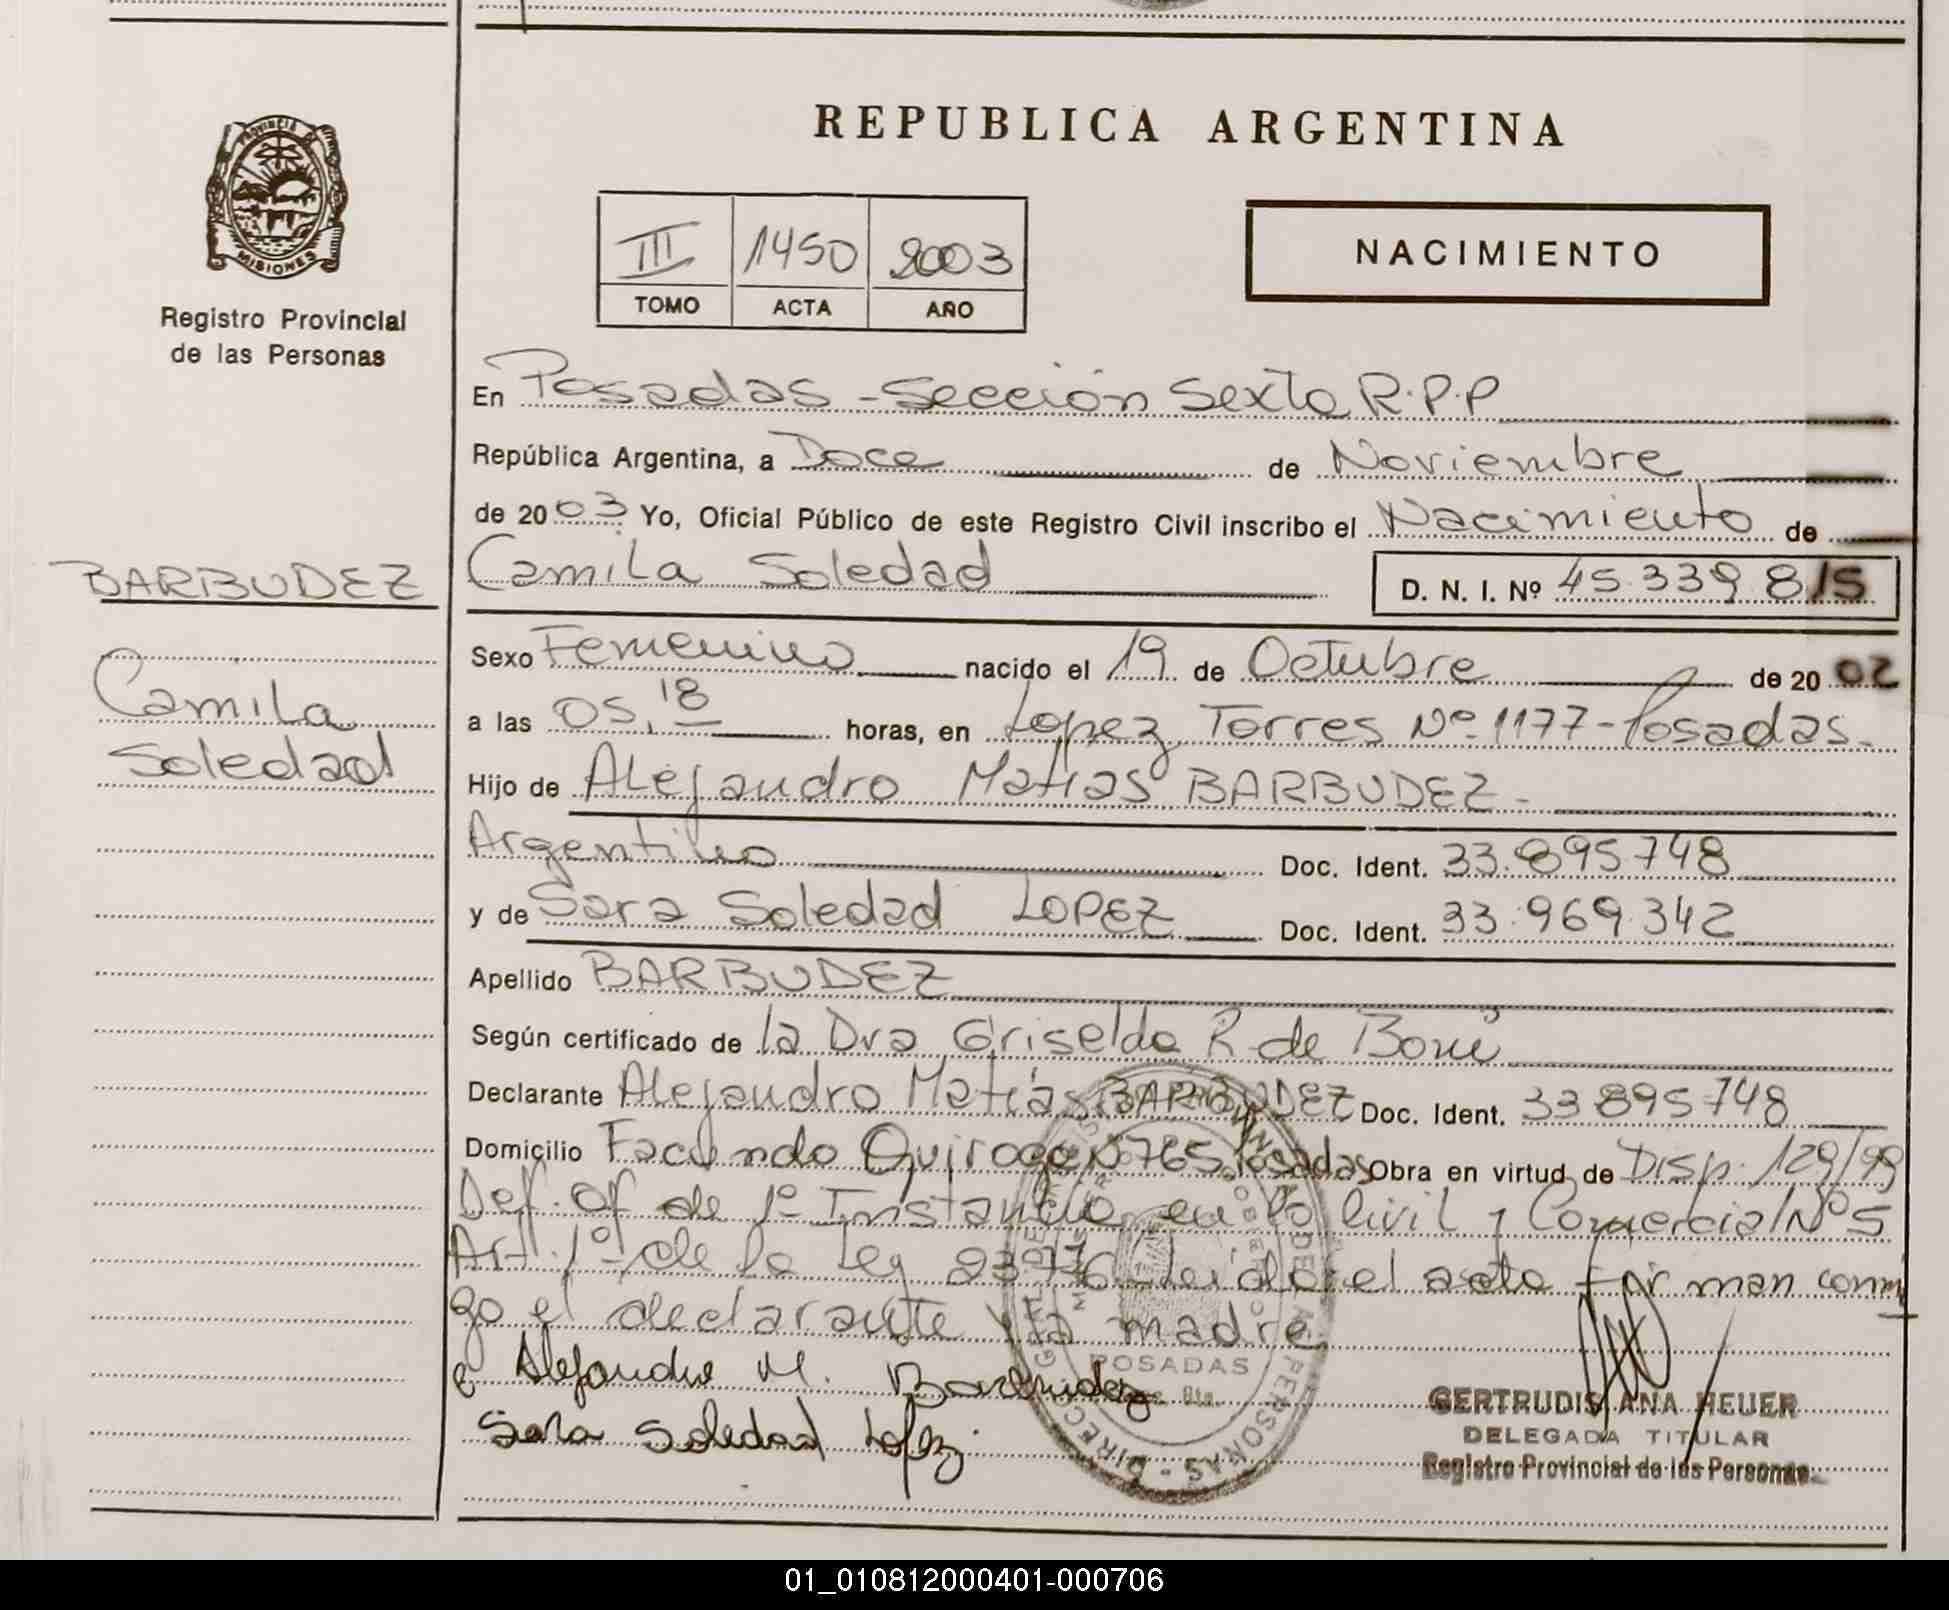 REPUBLICA ARGENTINA
PROVINCIA DE
MISIONES
Registro Provincial
de las Personas
III 1450 2003
TOMO ACTA AÑO
NACIMIENTO
En Posadas - Sección Sexta R.P.P
República Argentina, a Doce de Noviembre
de 2003 Yo, Oficial Público de este Registro Civil inscribo el Nacimiento de
BARBUDEZ
Camila Soledad
D. N. I. Nº 45.339.815
Camila
Soledad
Sexo Femenino nacido el 19 de Octubre de 2002
a las 05,18 horas, en Lopez Torres Nº 1177 - Posadas.
Hijo de Alejandro Matías BARBUDEZ -
Argentino Doc. Ident. 33.895748
y de Sara Soledad LOPEZ Doc. Ident. 33.969.342
Apellido BARBUDEZ
Según certificado de la Dra Griselda R. de
Declarante Alejandro Matías BARBUDEZ Doc. Ident. 33895748
Domicilio Facundo Quiroga Nº 765 Posadas Obra en virtud de Disp. 129/99
Def. Of de 1º Instancia en lo Civil y Comercial Nº 5
Art. 1º de la Ley Leído el acta firman conmi
go el declarante y la madre
Alejandro M. Barbudez
Sara Soledad Lopez
POSADAS
GERTRUDIS ANA HEUER
DELEGADA TITULAR
Registro Provincial de las Personas
01_010812000401-000706